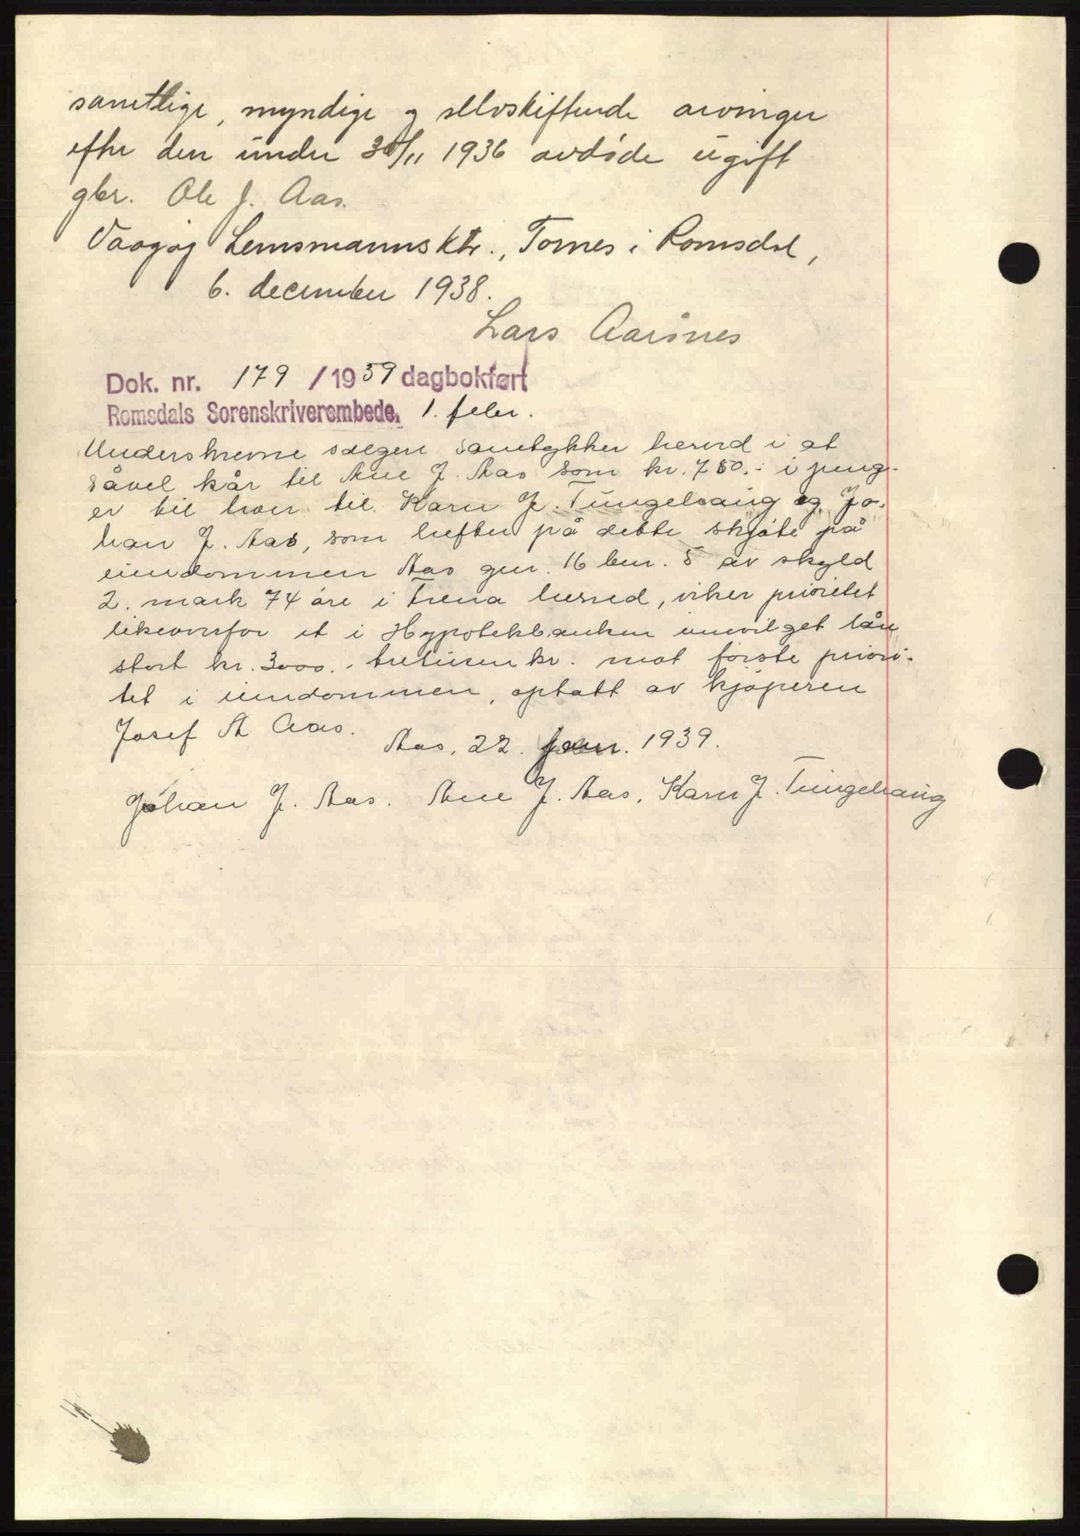 samtlige, myndige og selvskiftende arvinger
efter den under 30/11 1936 avdøde ugift
gbr. Ole J. Aas.
Vaagøy Lensmannsktr., Tornes i Romsdal,
6. december 1938.
Lars Aarsnes
Dok. nr. 179 /1939 dagbokført
Romsdals Sorenskriverembede, 1. febr.
Underskrevne sælgere samtykker herved i at
såvel kår til Ane J. Aas som kr. 750.- i peng-
er til hver til Karen J. Tungehaug og Jo-
han J. Aas, som hefter på dette skjøte på
eiendommen Aas gnr. 16 bnr. 5 av skyld
2. mark 74 øre i Fræna herred, viker prioritet
likeoverfor et i Hypotekbanken innvilget lån
stort kr. 3000.- tretusen kr. mot første priori-
tet i eiendommen, optatt av kjøperen
Josef A Aas.
Aas, 22. 1939.
Johan J. Aas. Ane J. Aas. Karen J. Tungehaug